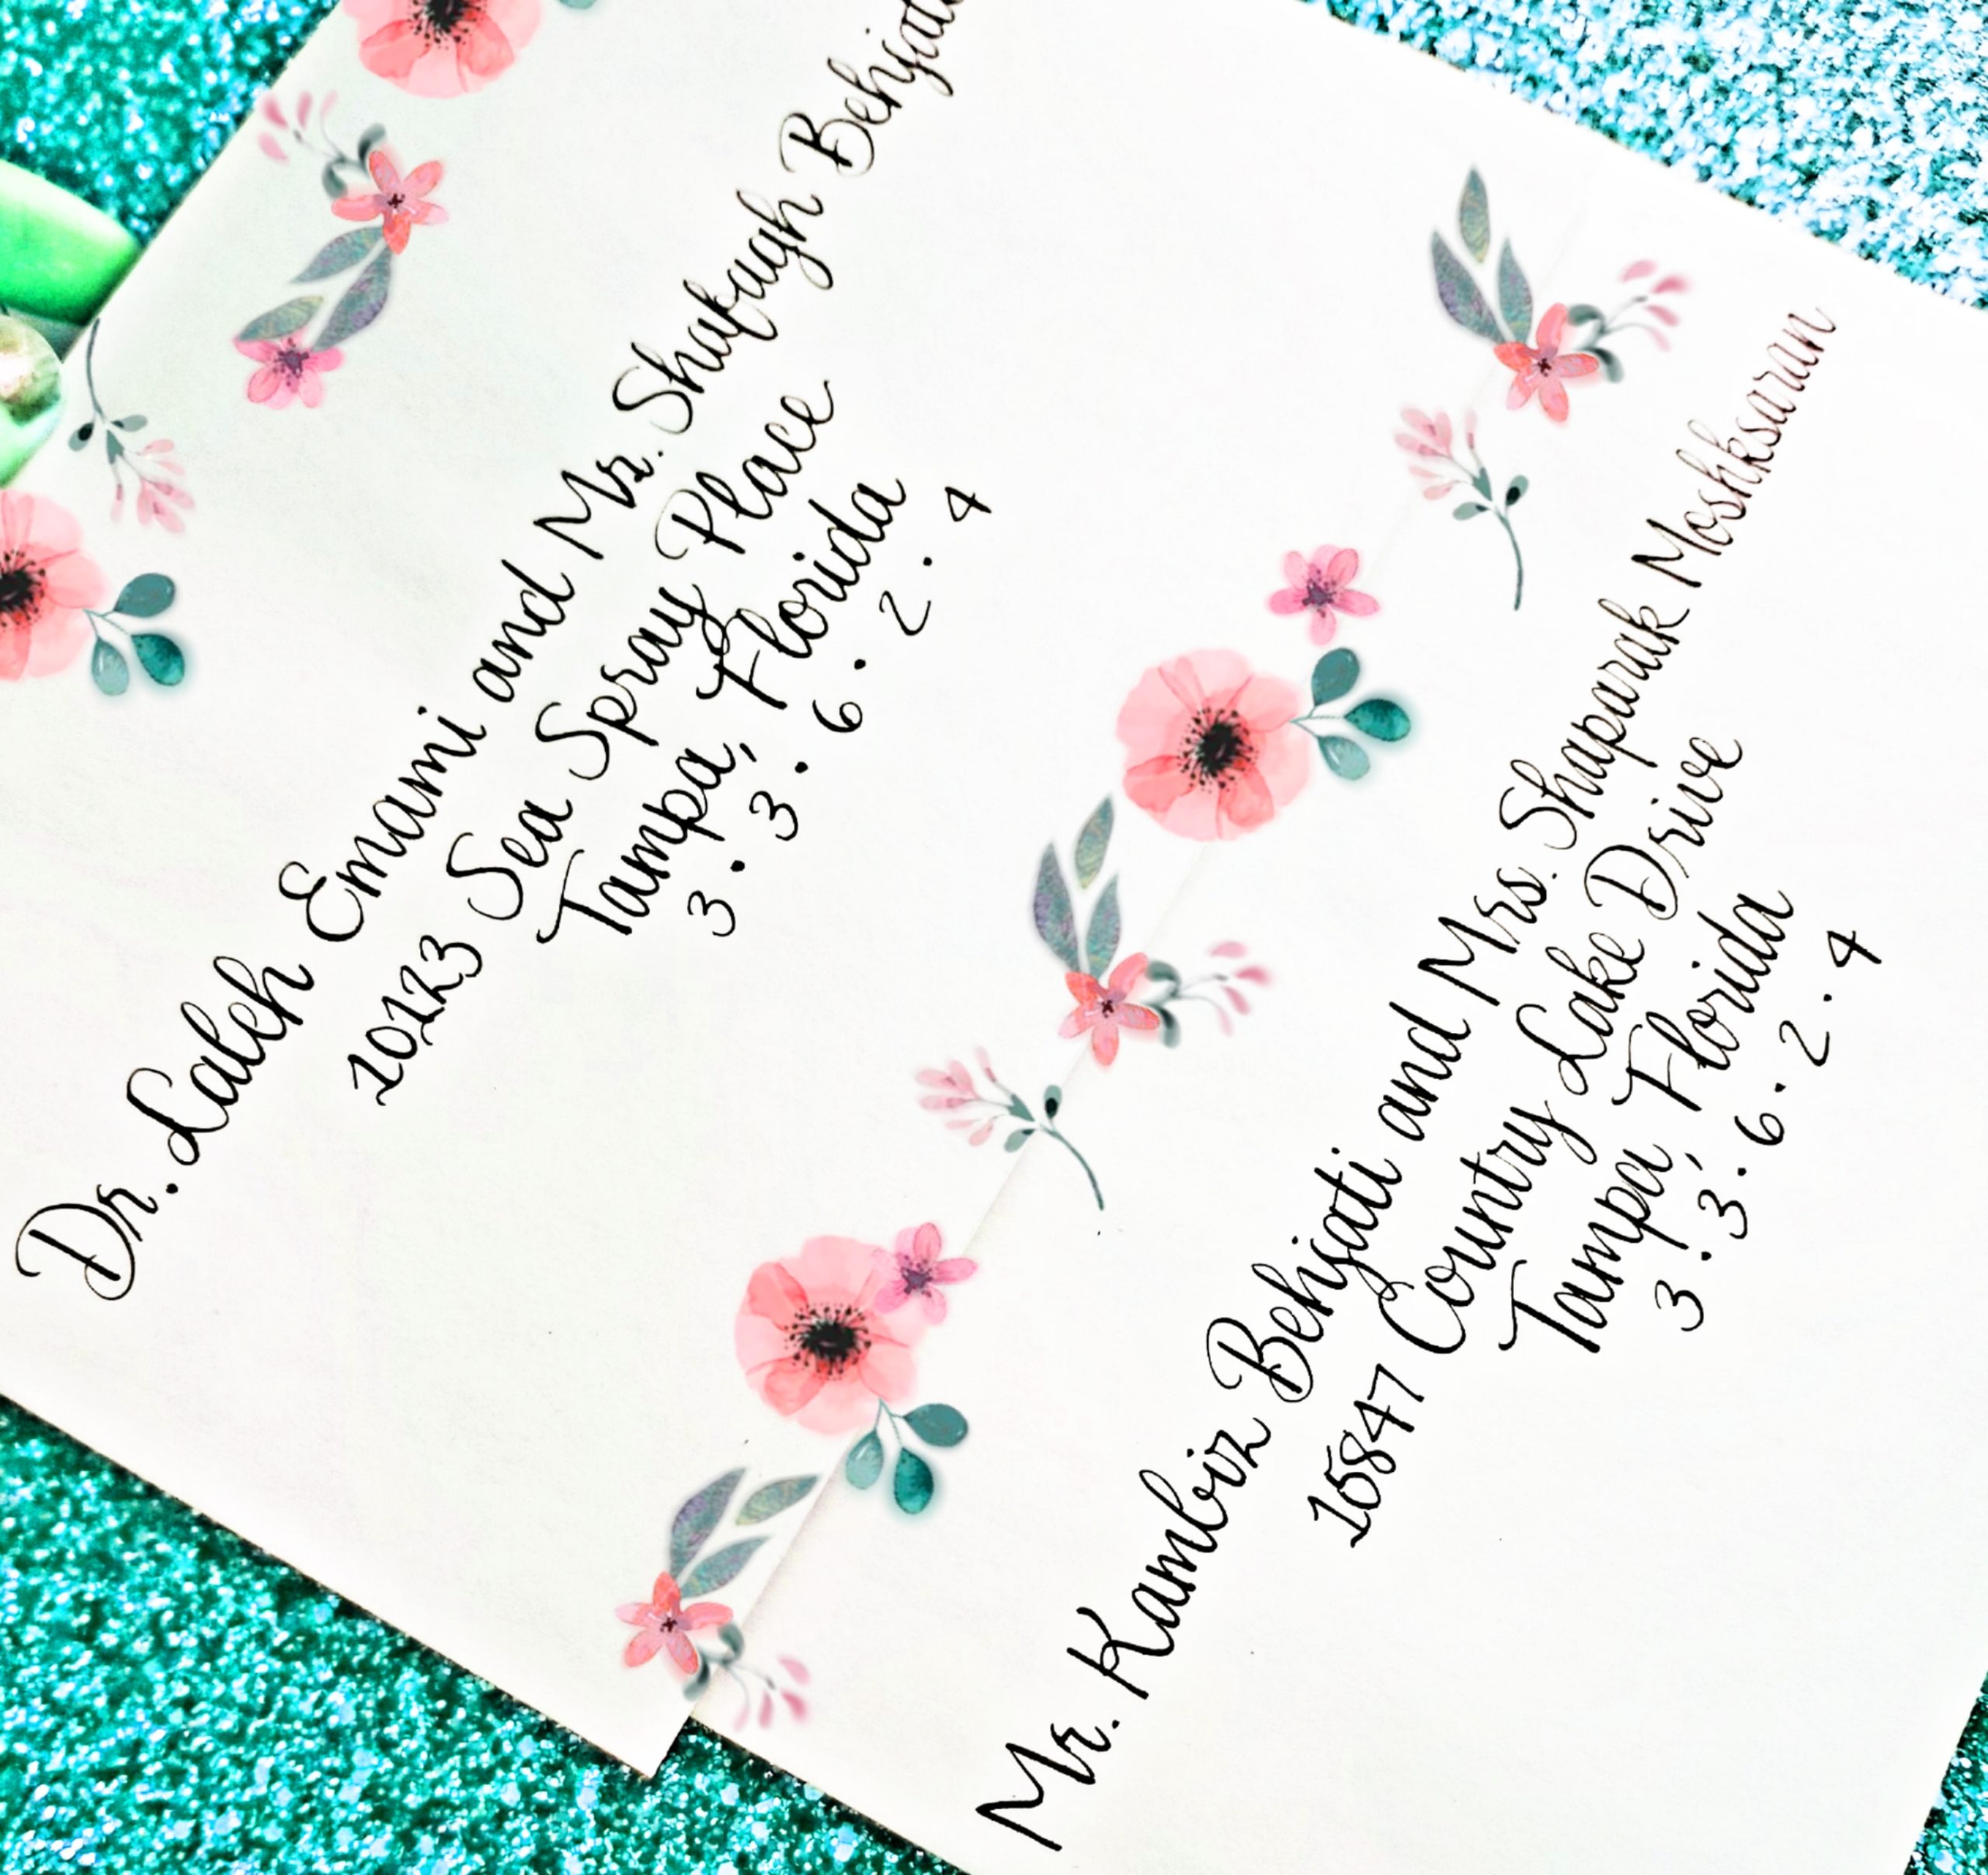 Dr. Laleh Emami and Mr. Shafagh Behjat
10123 Sea Spray Place
Tampa, Florida
3 . 3 . 6 . 2 . 4
Mr. Kambiz Behjati and Mrs. Shaparak Moshksaran
15847 Country Lake Drive
Tampa, Florida
3 . 3 . 6 . 2 . 4